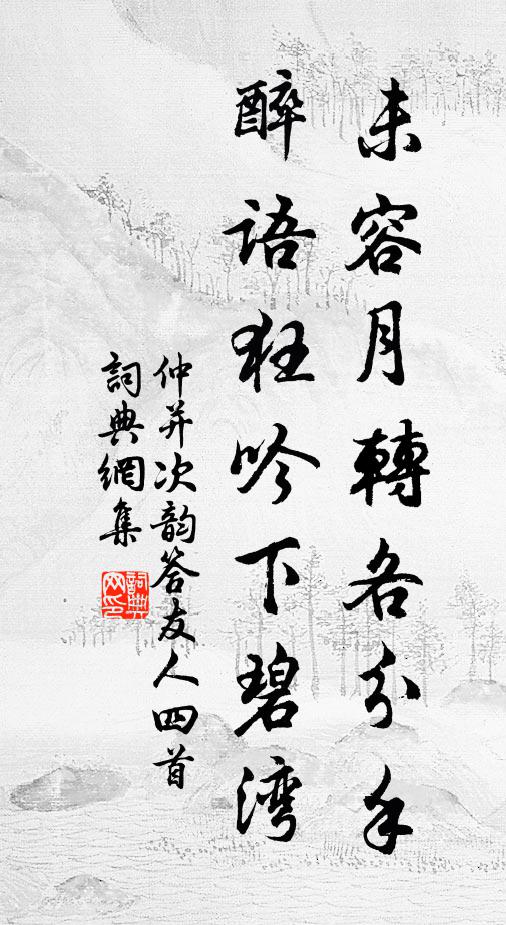 未容月轉各分手
醉語狂吟下碧湾
仲并次韵答友人四首
詞典網集
詞典网印